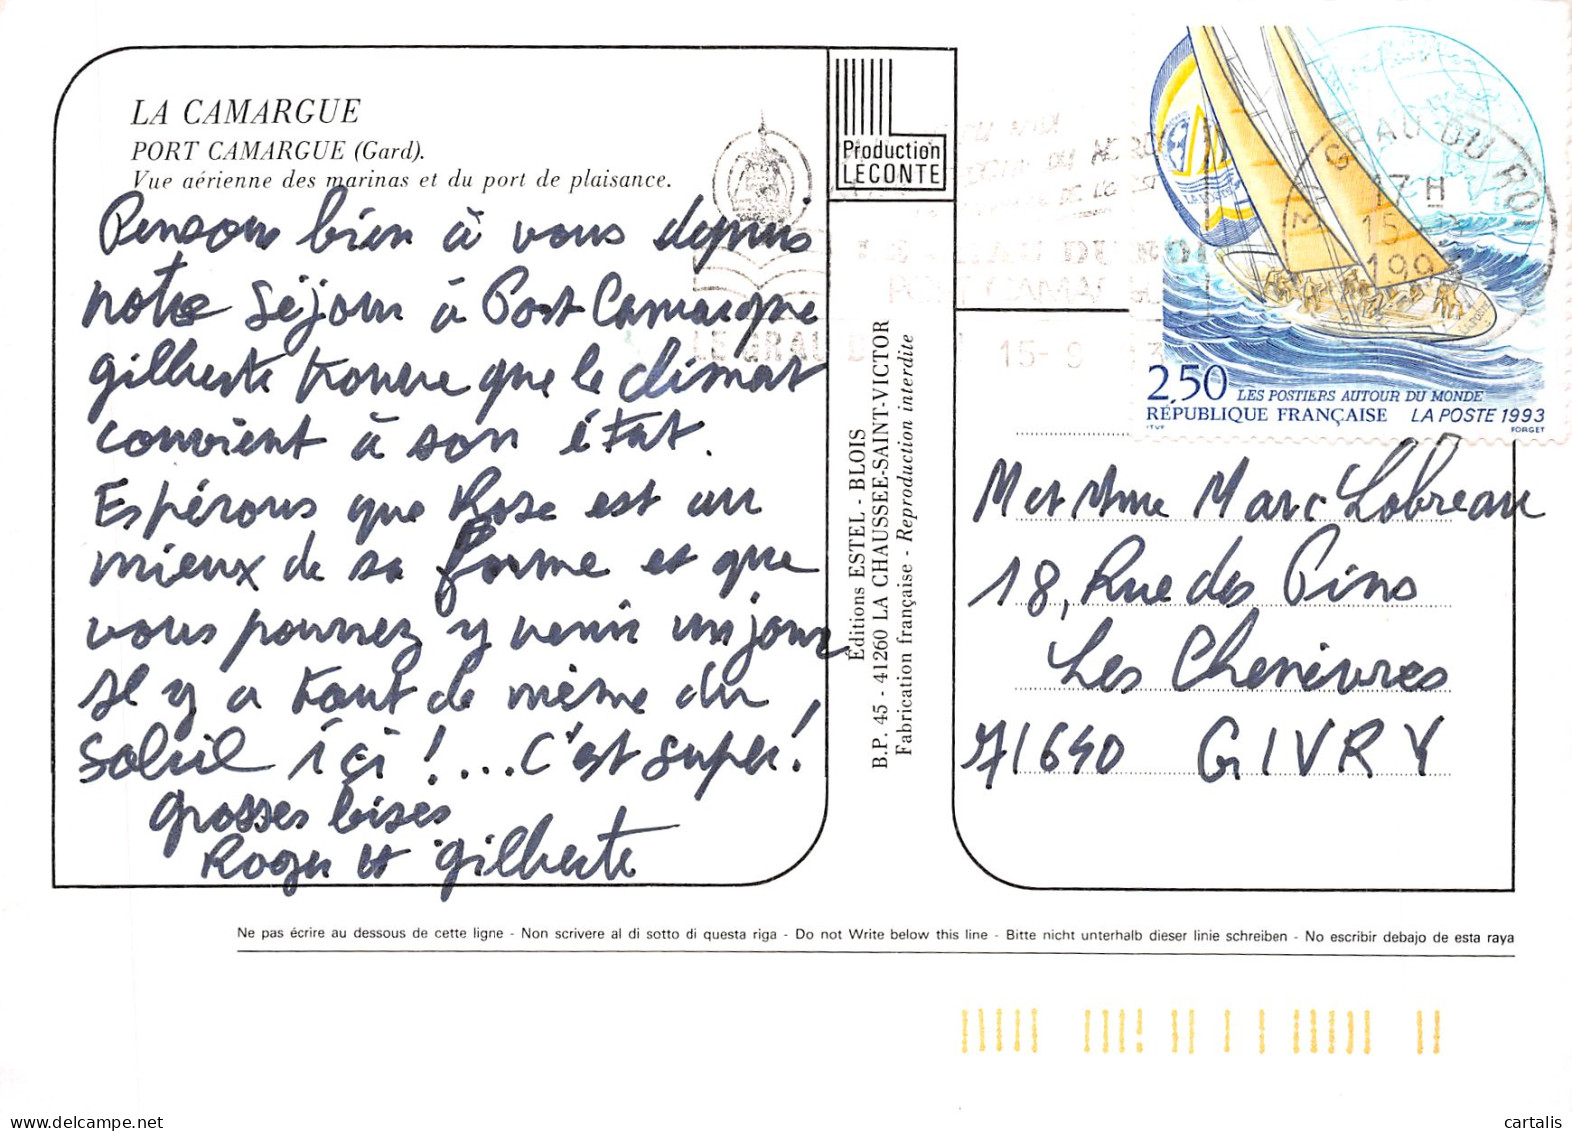 LA CAMARGUE
PORT CAMARGUE (Gard).
Vue aérienne des marinas et du port de plaisance.
Pensons bien à vous depuis
notre séjour à Port Camargue
gilberte trouve que le climat
convient à son état.
Espérons que Rose est au
mieux de sa forme et que
vous pourrez y venir un jour
Il y a tout de même du
soleil ici ! ... C'est super !
grosses bises
Roger et gilberte
Production
LECONTE
Éditions ESTEL - BLOIS
B.P. 45 - 41260 LA CHAUSSEE-SAINT-VICTOR
Fabrication française - Reproduction interdite
GRAU DU ROI
17 H
15-9
1993
2,50
LES POSTIERS AUTOUR DU MONDE
RÉPUBLIQUE FRANÇAISE LA POSTE 1993
ITVF FORGET
M et Mme Marc Lobreau
18, Rue des Pins
Les Chenèvres
71640 GIVRY
Ne pas écrire au dessous de cette ligne - Non scrivere al di sotto di questa riga - Do not Write below this line - Bitte nicht unterhalb dieser linie schreiben - No escribir debajo de esta raya
cartalis